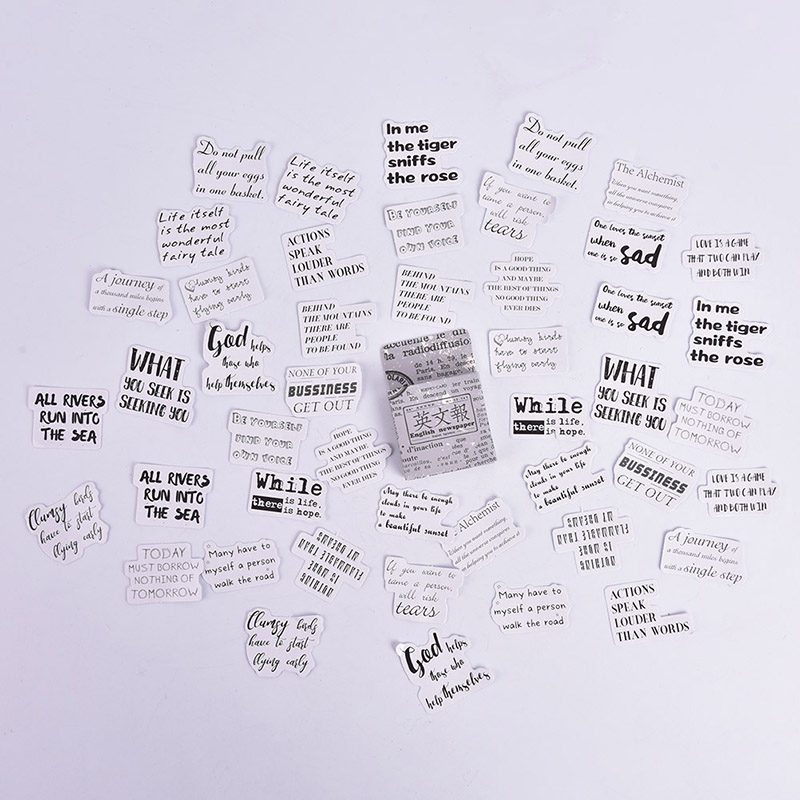 Do not pull
all your eggs
in one basket.
Life itself
is the most
wonderful
fairy tale
In me
the tiger
sniffs
the rose
Do not pull
all your eggs
in one basket.
The Alchemist
When you want something,
all the universe conspires
in helping you to achieve it
Life itself
is the most
wonderful
fairy tale
ACTIONS
SPEAK
LOUDER
THAN WORDS
BE YOURSELF
FIND YOUR
OWN VOICE
If you want to
tame a person,
will risk
tears
One loves the sunset
when
one is so sad
LOVE IS A GAME
THAT TWO CAN PLAY
AND BOTH WIN
A journey of
a thousand miles begins
with a single step
Clumsy birds
have to start
flying early
BEHIND
THE MOUNTAINS
THERE ARE
PEOPLE
TO BE FOUND
BEHIND
THE MOUNTAINS
THERE ARE
PEOPLE
TO BE FOUND
HOPE
IS A GOOD THING
AND MAYBE
THE BEST OF THINGS
NO GOOD THING
EVER DIES
One loves the sunset
when
one is so sad
In me
the tiger
sniffs
the rose
God helps
those who
help themselves
WHAT
YOU SEEK IS
SEEKING YOU
NONE OF YOUR
BUSSINESS
GET OUT
accueille le
la radiodiffusion
英文報
English newspaper
d'inaction
Clumsy birds
have to start
flying early
WHAT
YOU SEEK IS
SEEKING YOU
ALL RIVERS
RUN INTO
THE SEA
BE YOURSELF
FIND YOUR
OWN VOICE
HOPE
IS A GOOD THING
AND MAYBE
THE BEST OF THINGS
NO GOOD THING
EVER DIES
While
there is life.
there is hope.
TODAY
MUST BORROW
NOTHING OF
TOMORROW
ALL RIVERS
RUN INTO
THE SEA
While
there is life.
there is hope.
May there be enough
clouds in your life
to make
a beautiful sunset
May there be enough
clouds in your life
to make
a beautiful sunset
NONE OF YOUR
BUSSINESS
GET OUT
LOVE IS A GAME
THAT TWO CAN PLAY
AND BOTH WIN
Clumsy birds
have to start
flying early
TODAY
MUST BORROW
NOTHING OF
TOMORROW
Many have to
myself a person
walk the road
NOTHING
IS MORE
FLAMMABLE THAN
UT DREAMS
Alchemist
When you want something,
all the universe conspires
in helping you to achieve it
NOTHING
IS MORE
FLAMMABLE THAN
UT DREAMS
A journey of
a thousand miles begins
with a single step
If you want to
tame a person,
will risk
tears
Many have to
myself a person
walk the road
ACTIONS
SPEAK
LOUDER
THAN WORDS
Clumsy birds
have to start
flying early
God helps
those who
help themselves